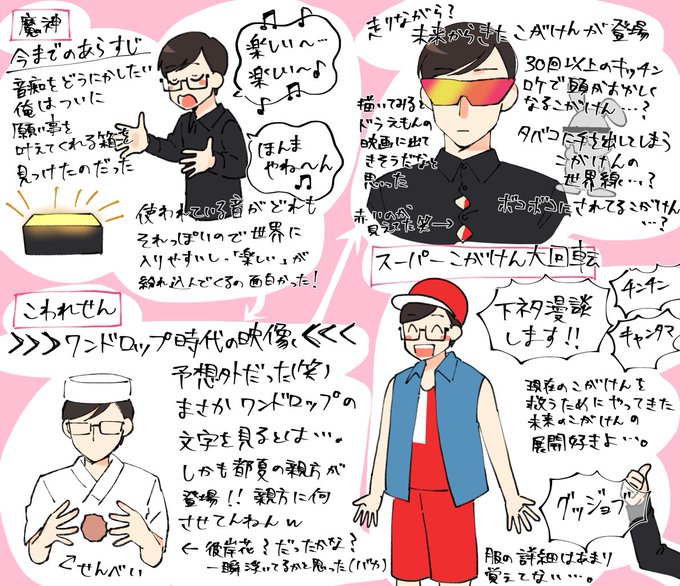 魔神
今までのあらすじ
音痴をどうにかしたい
俺はついに
願い事を
叶えてくれる箱を
見つけたのだった
楽しい〜…
楽しい〜♪
ほんま
やね〜ん
使われている音がどれも
それっぽいので世界に
入りやすいし、「楽しい」が
紛れ込んでくるの面白かった!
走りながら?
未来からきたこがけんが登場
30回以上のキッチン
ロケで頭がおかしく
なるこがけん…?
描いてみると
ドラえもんの
映画に出て
きそうだなと
思った
タバコに手を出してしまう
こがけんの
世界線…?
赤いのが
見えてた笑→
ボコボコにされてるこがけん
…?
こわれせん
>>>ワンドロップ時代の映像<<<
予想外だった(笑)
まさかワンドロップの
文字を見るとは…。
しかも都夏の親方が
登場!!親方に何
させてんねんw
←彼岸花?だったかな?
一瞬浮いてるかと思った(バカ)
せんべい
スーパーこがけん大回転
下ネタ漫談
します!!
チンチン
キャンタマ
現在のこがけんを
救うためにやってきた
未来のこがけんの
展開好きよ…。
グッジョブ
服の詳細はあまり
覚えてない…。